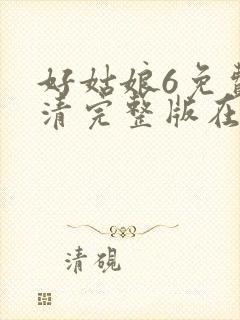 好姑娘6免费
清完整版在
清砚